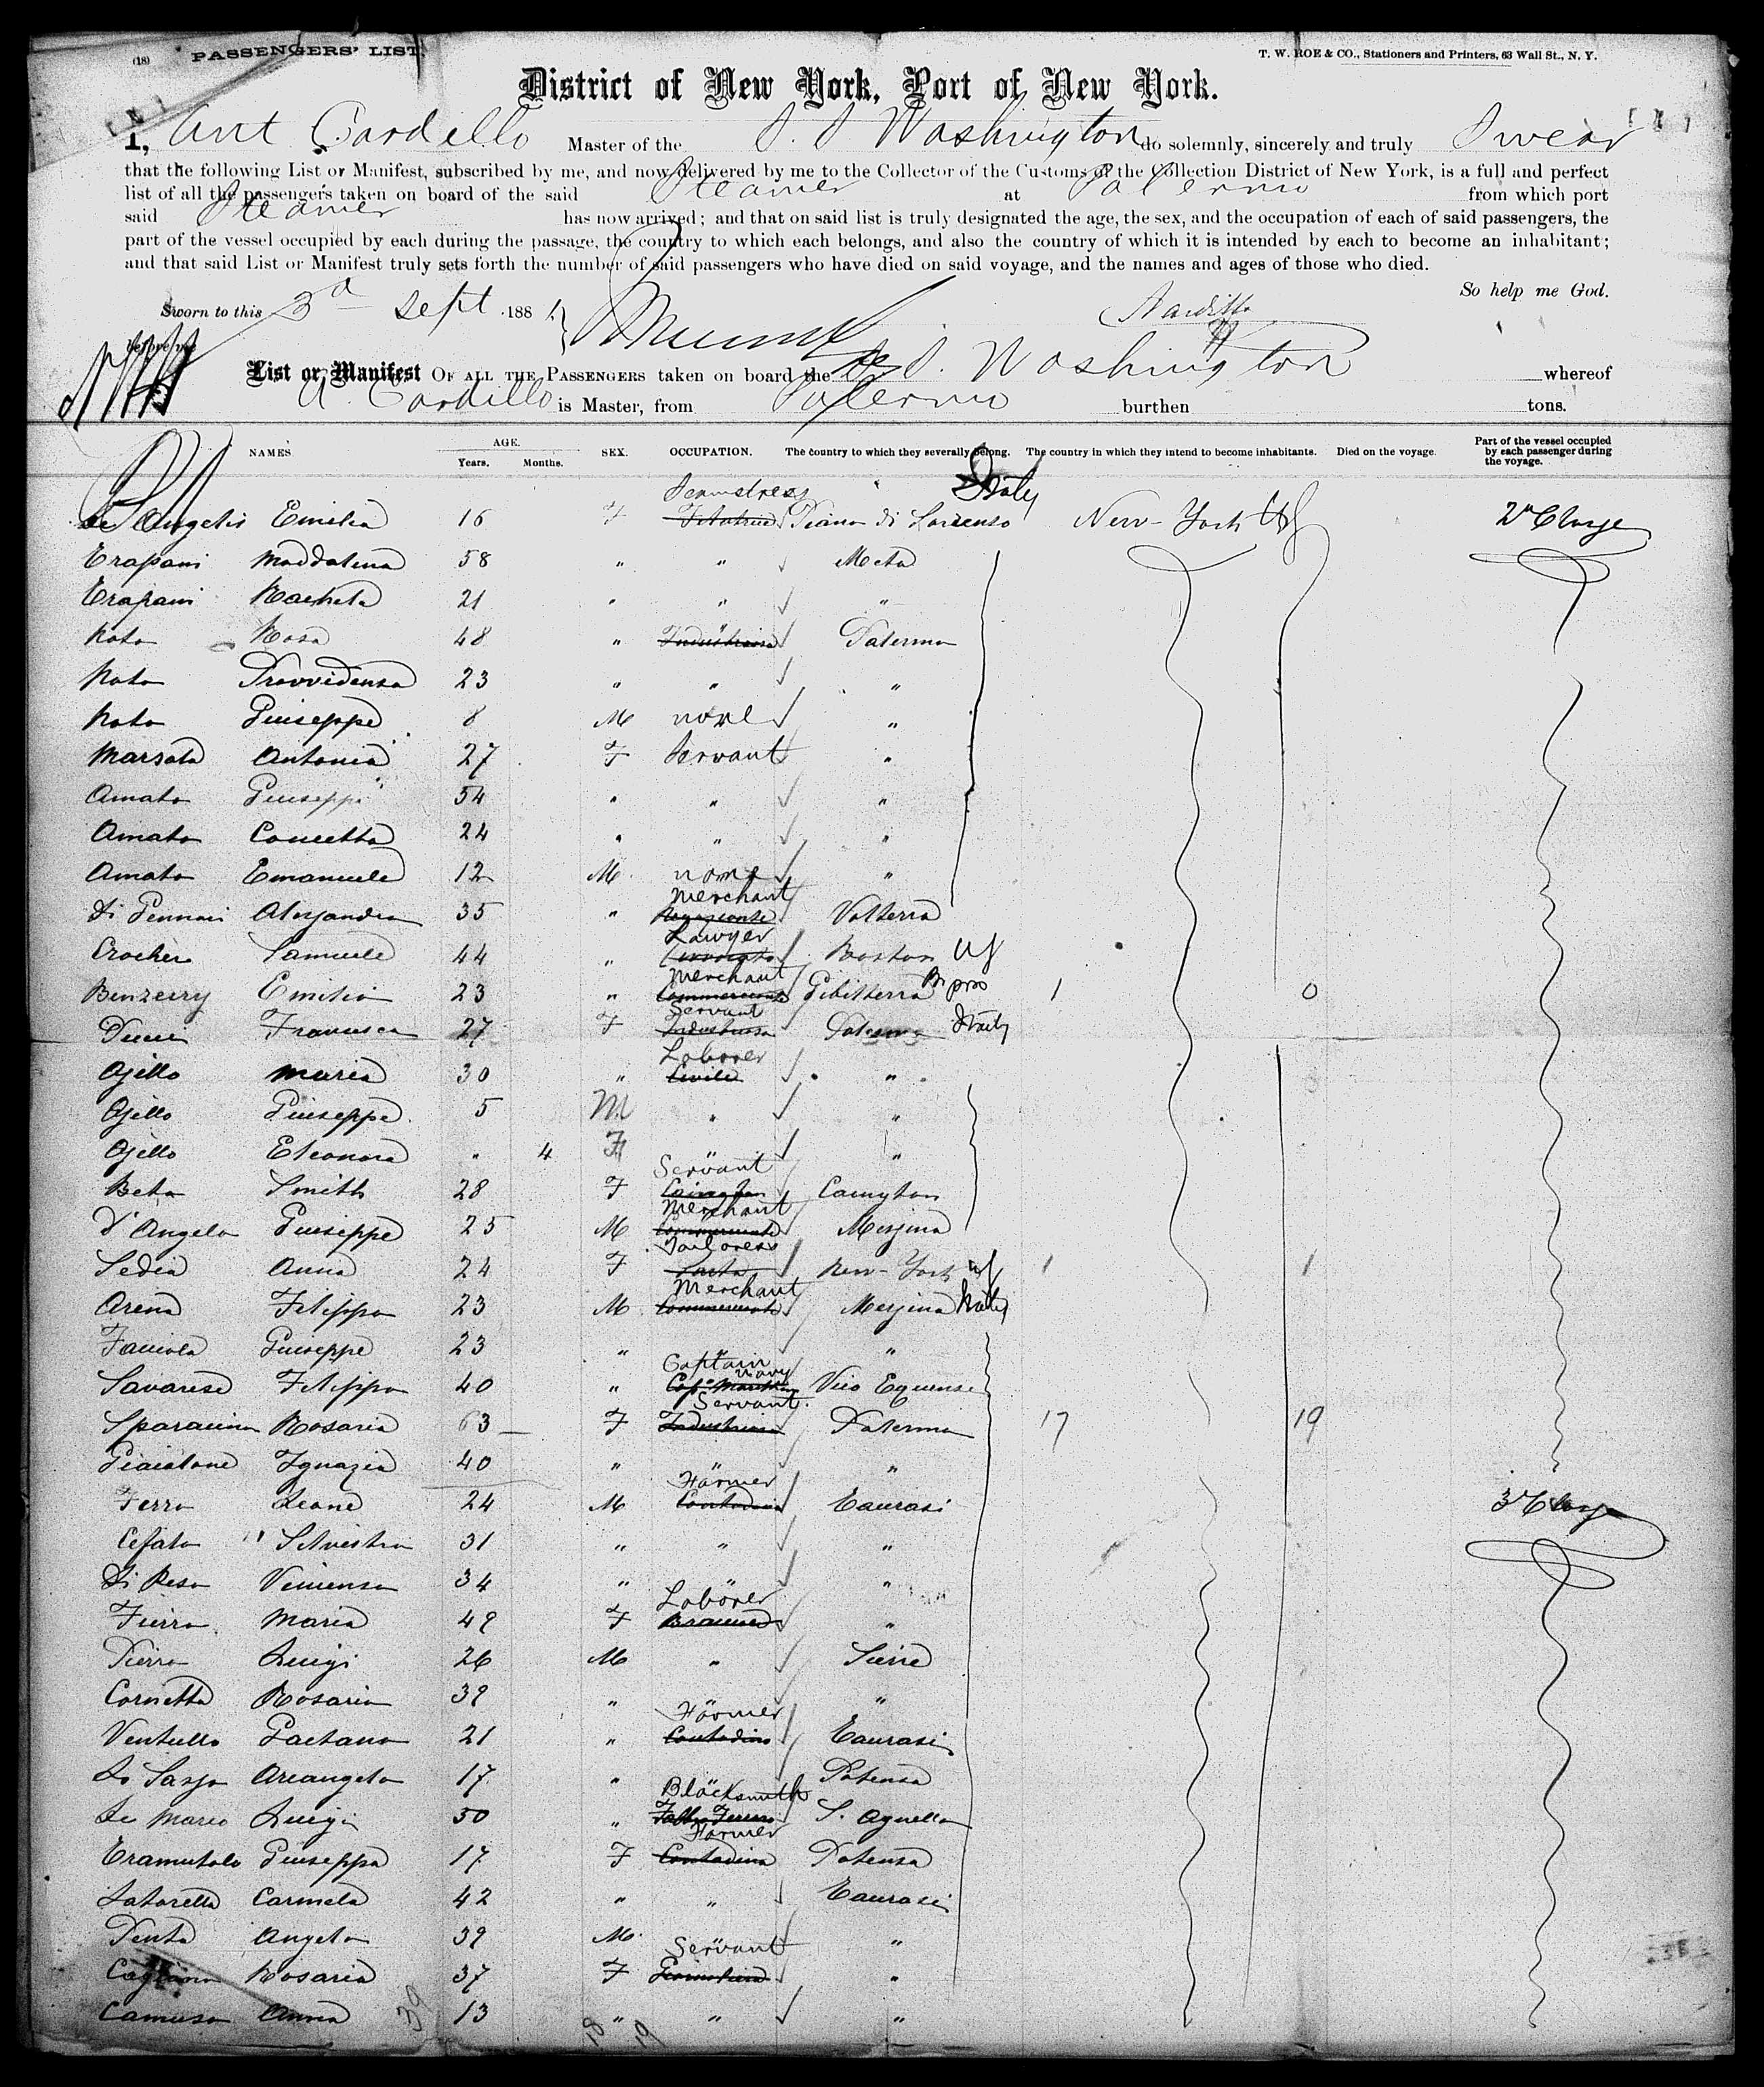 (18) PASSENGERS' LIST.
T. W. ROE & CO., Stationers and Printers, 63 Wall St., N. Y.
District of New York, Port of New York.
I, Ant Cardillo Master of the S. S Washington do solemnly, sincerely and truly Swear
that the following List or Manifest, subscribed by me, and now delivered by me to the Collector of the Customs of the Collection District of New York, is a full and perfect
list of all the passengers taken on board of the said Steamer at Palermo from which port
said Steamer has now arrived; and that on said list is truly designated the age, the sex, and the occupation of each of said passengers, the
part of the vessel occupied by each during the passage, the country to which each belongs, and also the country of which it is intended by each to become an inhabitant;
and that said List or Manifest truly sets forth the number of said passengers who have died on said voyage, and the names and ages of those who died.
So help me God.
Sworn to this 3d Sept 188
before me
List or Manifest OF ALL THE PASSENGERS taken on board the S. S. Washington whereof
A. Cardillo is Master, from Palermo burthen tons.
NAMES AGE. Years. Months. SEX. OCCUPATION. The country to which they severally belong. The country in which they intend to become inhabitants. Died on the voyage. Part of the vessel occupied by each passenger during the voyage.
Seamstress Italy
de Angelis Emilia 16 F Piano di Sorrento New-York 2a Classe
Trapani Maddalena 58 " " Meta
Trapani Rachela 21 " " "
Noto Rosa 48 " Industriosa Palermo
Noto Provvidenza 23 " " "
Noto Giuseppe 8 M none "
Marsala Antonia 27 F Servant "
Amato Giuseppa 54 " " "
Amato Concetta 24 " " "
Amato Emanuele 12 M. none "
Merchant
di Gennari Alessandro 35 " Negoziante Volterra
Lawyer
Crocker Samuele 44 " Boston
Merchant
Benzerry Emilio 23 " Commerciante Gibilterra 1 0
Servant
Francesca 27 F Industriosa Palermo Italy
Laborer
Ajello Maria 30 " Civile "
Ajello Giuseppe 5 M " "
Ajello Eleonora " 4 F "
Servant
Beta Smith 28 F
Merchant
D'Angelo Giuseppe 25 M Commerciante Messina
Tailoress
Sedia Anna 24 F Sarta New-York 1 1
Merchant
Arena Filippo 23 M Commerciante Messina Italy
Giuseppe 23 " "
Captain navy
Savarese Filippo 40 " Vico Equense
Servant
Sparacino Rosaria 63 F Industriosa Palermo 17 19
Ignazia 40 " " "
Farmer
Ferro Leone 24 M Contadino Taurasi 3a Classe
Cefalo Silvestro 31 " " "
di Peso Vincenzo 34 " " "
Laborer
Fierro Maria 49 F "
Pierro Luigi 26 M "
Cornetta Rosario 39 " "
Farmer
Ventullo Gaetano 21 " Contadino Taurasi
Lo Sasso Arcangelo 17 " Potenza
Blacksmith
de Marco Luigi 50 " Fabbro Ferraio S. Agnello
Farmer
Tramutolo Giuseppa 17 F Contadina Potenza
Carmela 42 " " Taurasi
Penta Angelo 39 M. "
Servant
Rosaria 37 F "
Camuso Anna 13 " " "
39 18 19